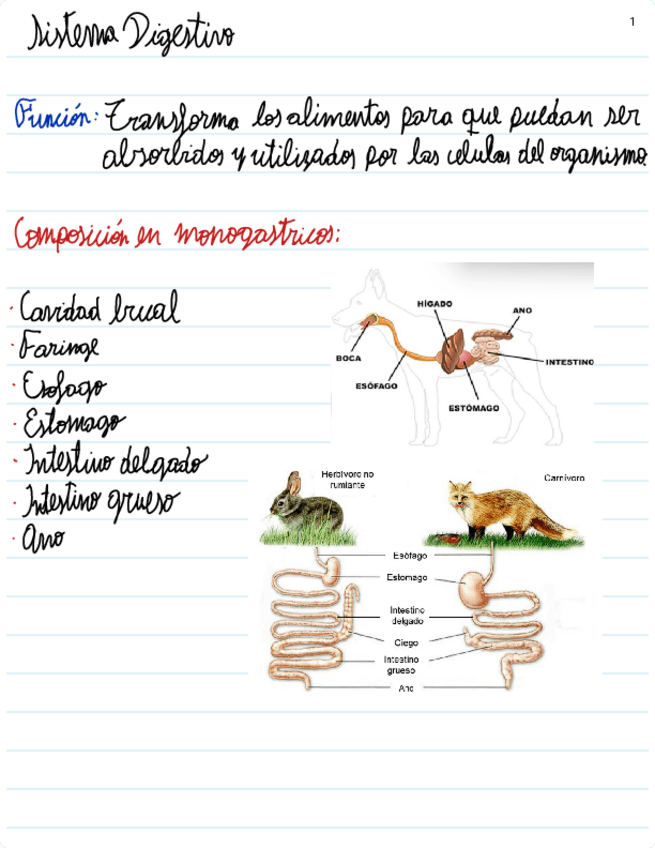 1
Sistema Digestivo
Función: Transforma los alimentos para que puedan ser
absorbidos y utilizados por las celulas del organismo
Composición en monogastricos:
· Cavidad bucal
· Faringe
· Esofago
· Estomago
· Intestino delgado
· Intestino grueso
· Ano
HÍGADO
ANO
BOCA
INTESTINO
ESÓFAGO
ESTÓMAGO
Herbívoro no
rumiante
Carnívoro
Esófago
Estomago
Intestino
delgado
Ciego
Intestino
grueso
Ano